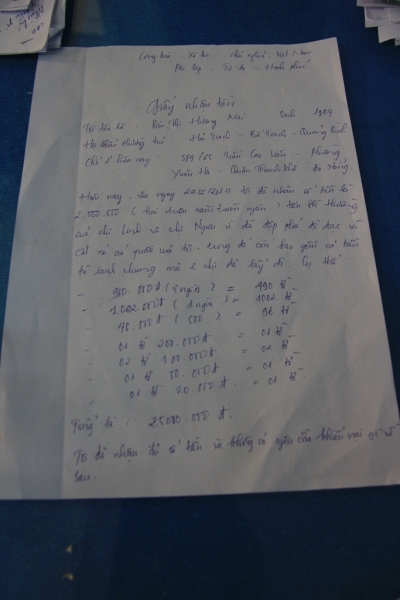 Cộng hòa - Xã hội - chủ nghĩa - Việt Nam
Độc lập - Tự do - Hạnh phúc
Giấy nhận tiền
Tôi tên là: Thị Hương Mai Sinh 1984
Hộ khẩu thường trú: Trạch - Bố Trạch - Quảng Bình
Chỗ ở hiện nay: 589/25 Trần Cao Vân - Phường
Xuân Hà - Quận Thanh Khê - Đà Nẵng.
Hôm nay, vào ngày tôi đã nhận số tiền là
2.500.000 (hai triệu năm trăm ngàn) tiền bồi thường
của chị Linh và chị Ngân vì đã đập phá đồ đạc và
người của tôi, trong đó còn bao gồm cả tiền
mà 2 chị đã lấy đi. Cụ thể:
- 000đ ( ngàn) = 490 tờ
- 1.002.000đ (1 ngàn) = 1002 tờ
- 48.000đ (500) = 96 tờ
- 01 tờ 200.000đ = 01 tờ
- 02 tờ 100.000đ = 02 tờ
- 01 tờ 50.000đ = 01 tờ
- 01 tờ 20.000đ = 01 tờ.
Tổng là: 25000.000đ.
Tôi đã nhận đủ số tiền và không có yêu cầu khiếu nại gì về
sau.